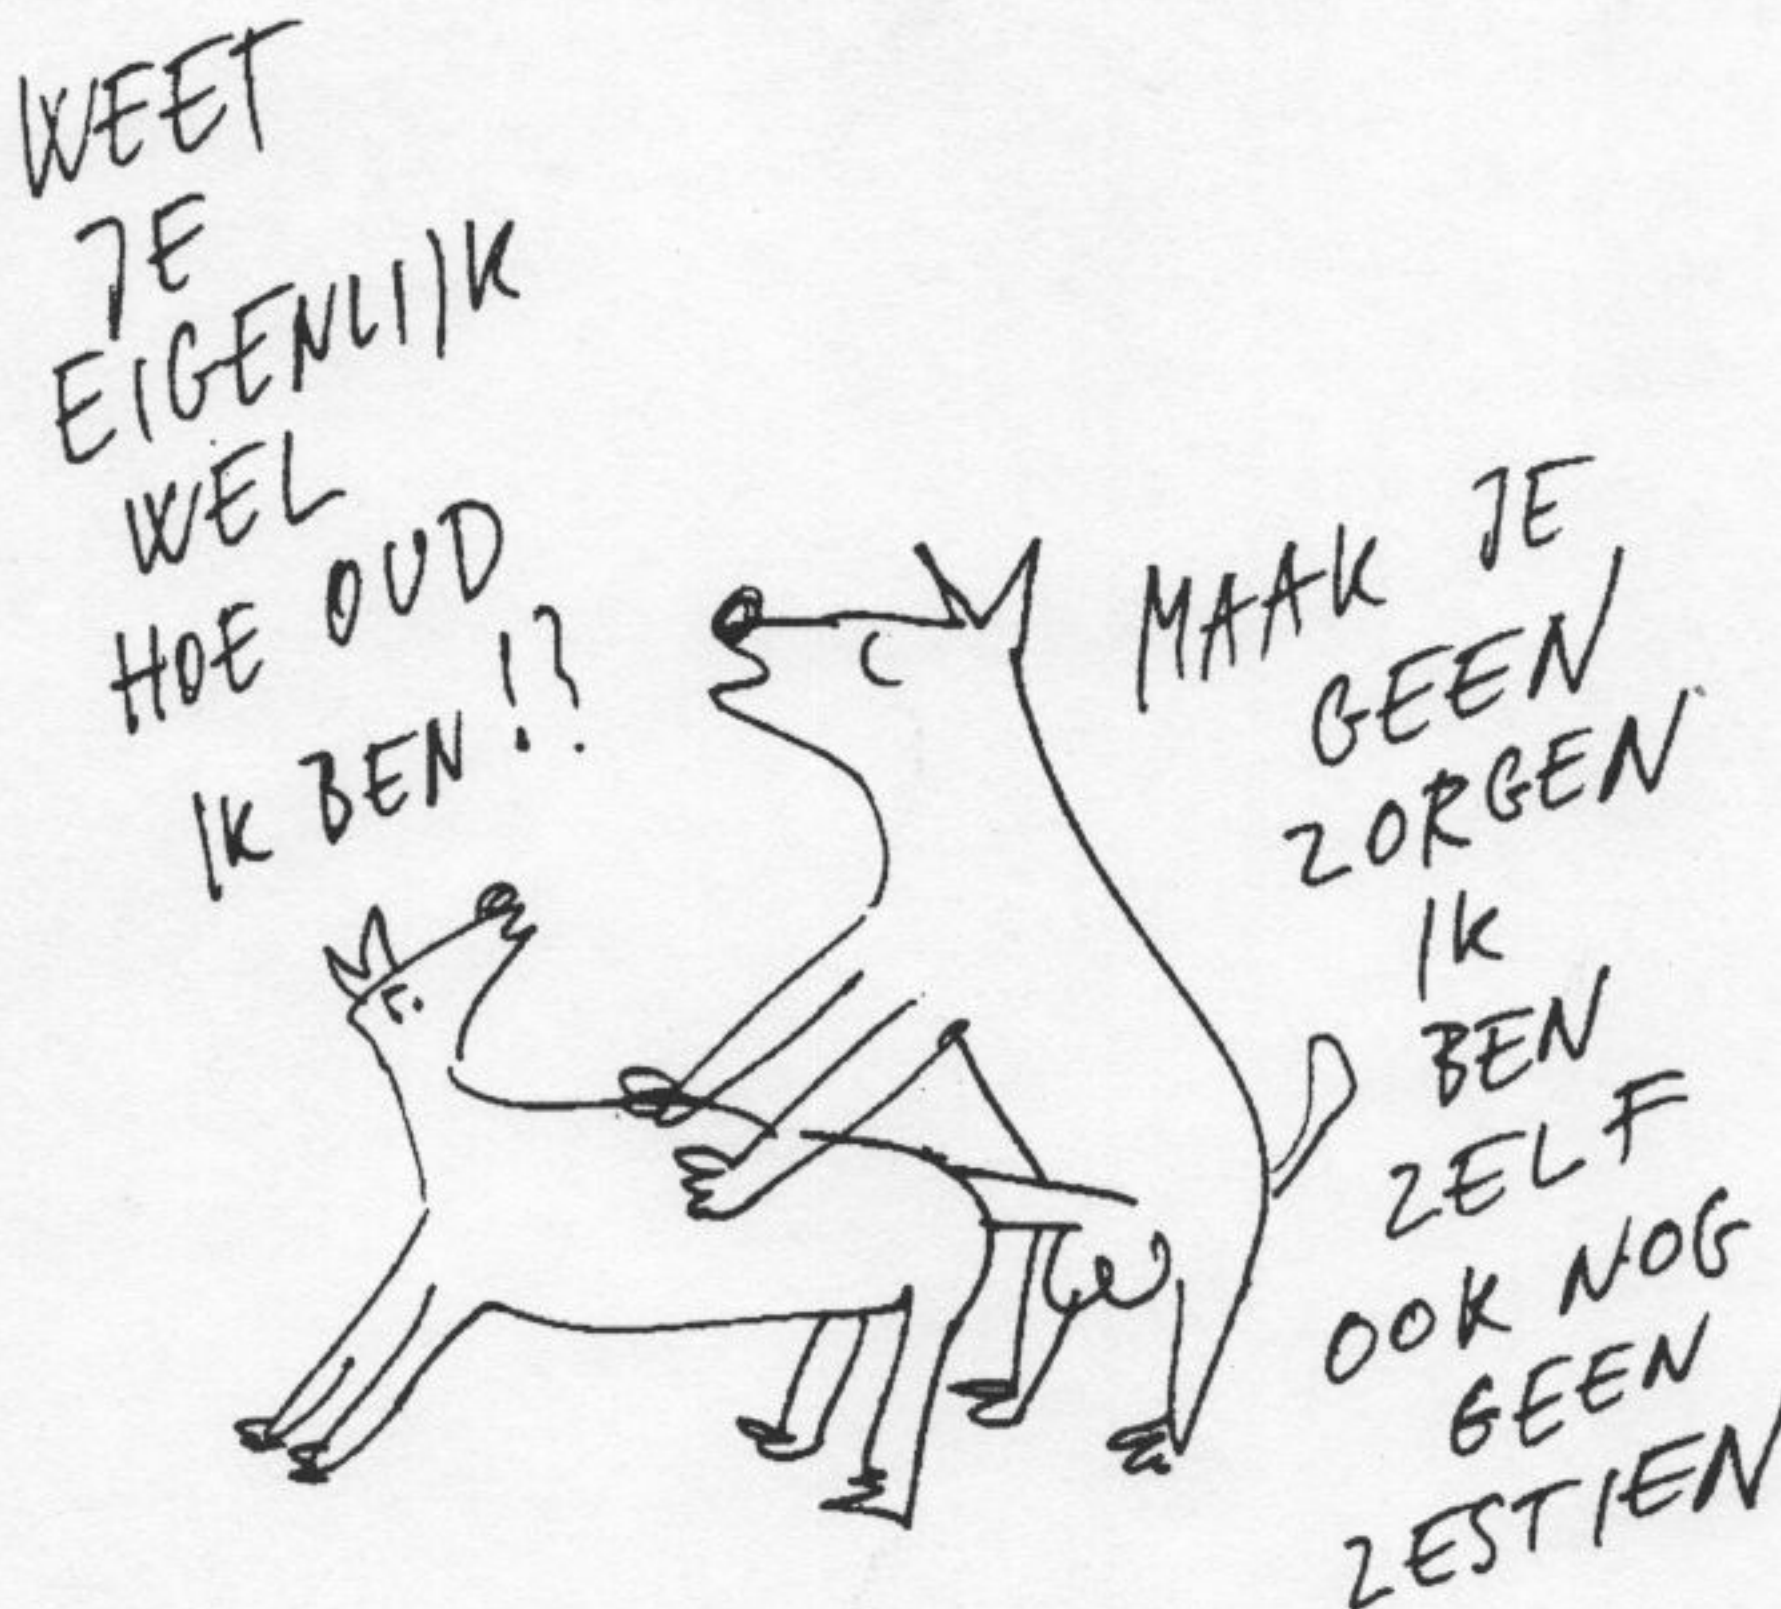 WEET
JE
EIGENLIJK
WEL
HOE OUD
IK BEN!?
MAAK JE
GEEN
ZORGEN
IK
BEN
ZELF
OOK NOG
GEEN
ZESTIEN